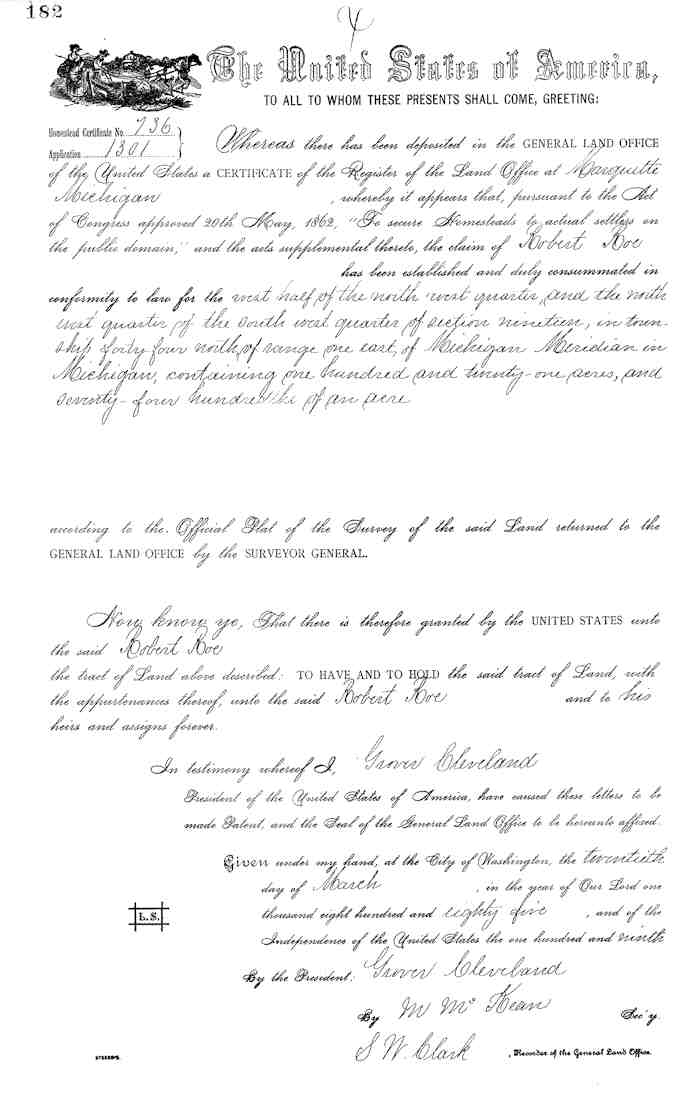 182
4
The United States of America,
TO ALL TO WHOM THESE PRESENTS SHALL COME, GREETING:
Homestead Certificate No. 736
Application 1301
Whereas there has been deposited in the GENERAL LAND OFFICE
of the United States a CERTIFICATE of the Register of the Land Office at Marquette
Michigan , whereby it appears that, pursuant to the Act
of Congress approved 20th May, 1862, "To secure Homesteads to actual settlers on
the public domain," and the acts supplemental thereto, the claim of Robert Roe
has been established and duly consummated in
conformity to law for the west half of the north west quarter, and the north
west quarter of the south west quarter of section nineteen, in town-
ship forty four north, of range one east, of Michigan Meridian in
Michigan, containing one hundred and twenty-one acres, and
seventy-four hundredths of an acre
according to the Official Plat of the Survey of the said Land returned to the
GENERAL LAND OFFICE by the SURVEYOR GENERAL.
Now know ye, That there is therefore granted by the UNITED STATES unto
the said Robert Roe
the tract of Land above described: TO HAVE AND TO HOLD the said tract of Land, with
the appurtenances thereof, unto the said Robert Roe and to his
heirs and assigns forever.
In testimony whereof I, Grover Cleveland
President of the United States of America, have caused these letters to be
made Patent, and the Seal of the General Land Office to be hereunto affixed.
Given under my hand, at the City of Washington, the twentieth
day of March , in the year of Our Lord one
thousand eight hundred and eighty five , and of the
L.S.
Independence of the United States the one hundred and ninth
By the President: Grover Cleveland
By M McKean Sec'y.
S W Clark , Recorder of the General Land Office.